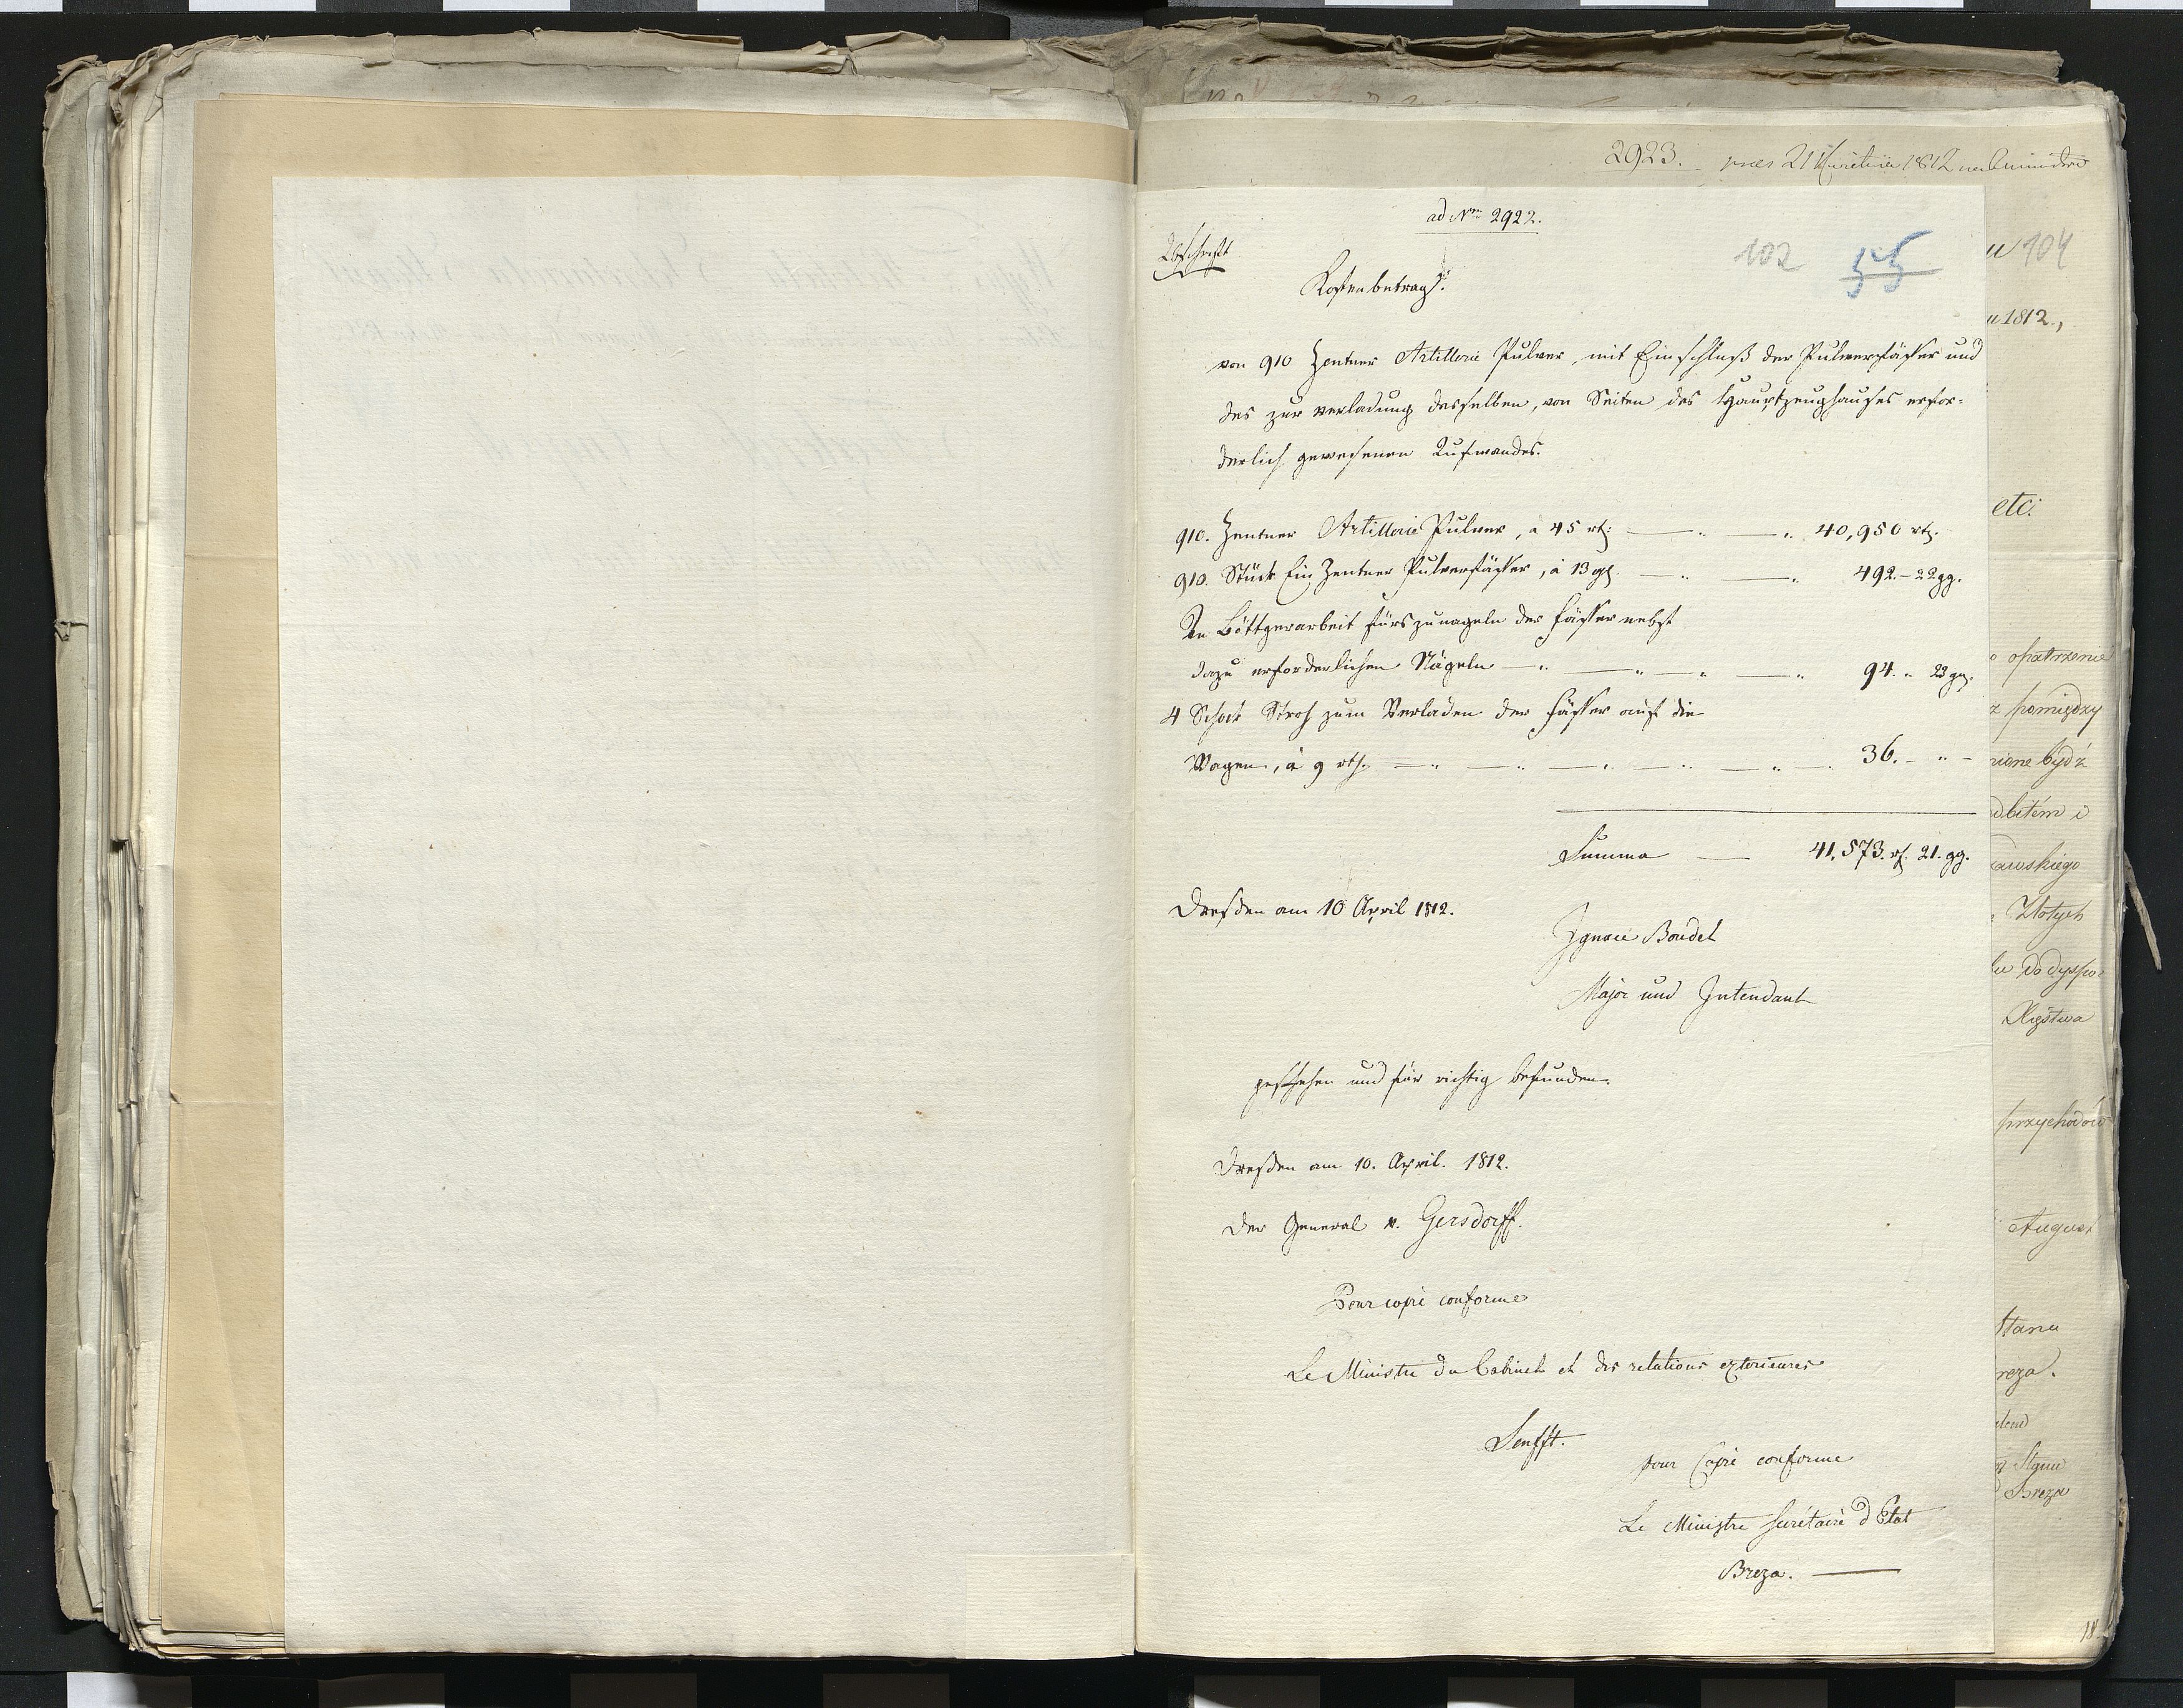 2923. praes 21 Kwietnia 1812
ad Nrm 2922.
Abschrift
102 55
Kostenbetrag.
von 910 Zentner Artillerie Pulver, mit Einschluß der Pulverfässer und
des zur Verladung desselben, von Seiten des Hauptzeughauses erfor-
derlich gewesenen Aufwandes.
910. Zentner Artillerie Pulver, à 45 rt: — " — " 40,950 rt.
910. Stück Ein Zentner Pulverfässer, à 13 gl. — " — " 492. — 22 gg.
An Böttgerarbeit fürs zunageln der Fässer nebst
dazu erforderlichen Nägeln — " — " — " — " 94. " 23 gg.
4 Schock Stroh zum Verladen der Fässer auf die
Wagen, à 9 rth. — " — " — " — " — " — 36. — " —
Summa — 41,573. rt. 21. gg.
Dresden am 10 April 1812.
Ignace Boudet
Major und Intendant
gesehen und für richtig befunden.
Dresden am 10. April. 1812.
Der General v. Gersdorff.
Pour copie conforme
Le Ministre du Cabinet et des relations exterieures
Senfft.
pour Copie conforme
Le Ministre Secrétaire d'Etat
Breza. —
u 104
u 1812.,
etc:
opatrzenie
z pomiędzy
niane bydź
dbitém i
zawskiego
Złotych
lu do dyspo-
Xięstwa
przychodów
August
Stanu
reza.
Stanu
Breza
18